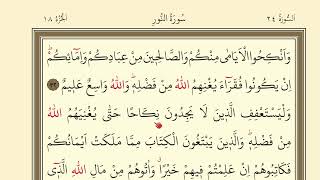 اَلسُّورَةُ ٢٤ سُورَةُ النُّورِ اَلْجُزْءُ ١٨
وَاَنْكِحُوا الْاَيَامٰى مِنْكُمْ وَالصَّالِحٖينَ مِنْ عِبَادِكُمْ وَاِمَٓائِكُمْۜ
اِنْ يَكُونُوا فُقَرَٓاءَ يُغْنِهِمُ اللّٰهُ مِنْ فَضْلِهٖۜ وَاللّٰهُ وَاسِعٌ عَلٖيمٌ ٣٢
وَلْيَسْتَعْفِفِ الَّذٖينَ لَا يَجِدُونَ نِكَاحًا حَتّٰى يُغْنِيَهُمُ اللّٰهُ
مِنْ فَضْلِهٖۜ وَالَّذٖينَ يَبْتَغُونَ الْكِتَابَ مِمَّا مَلَكَتْ اَيْمَانُكُمْ
فَكَاتِبُوهُمْ اِنْ عَلِمْتُمْ فٖيهِمْ خَيْرًاۗ وَاٰتُوهُمْ مِنْ مَالِ اللّٰهِ الَّذٖٓي